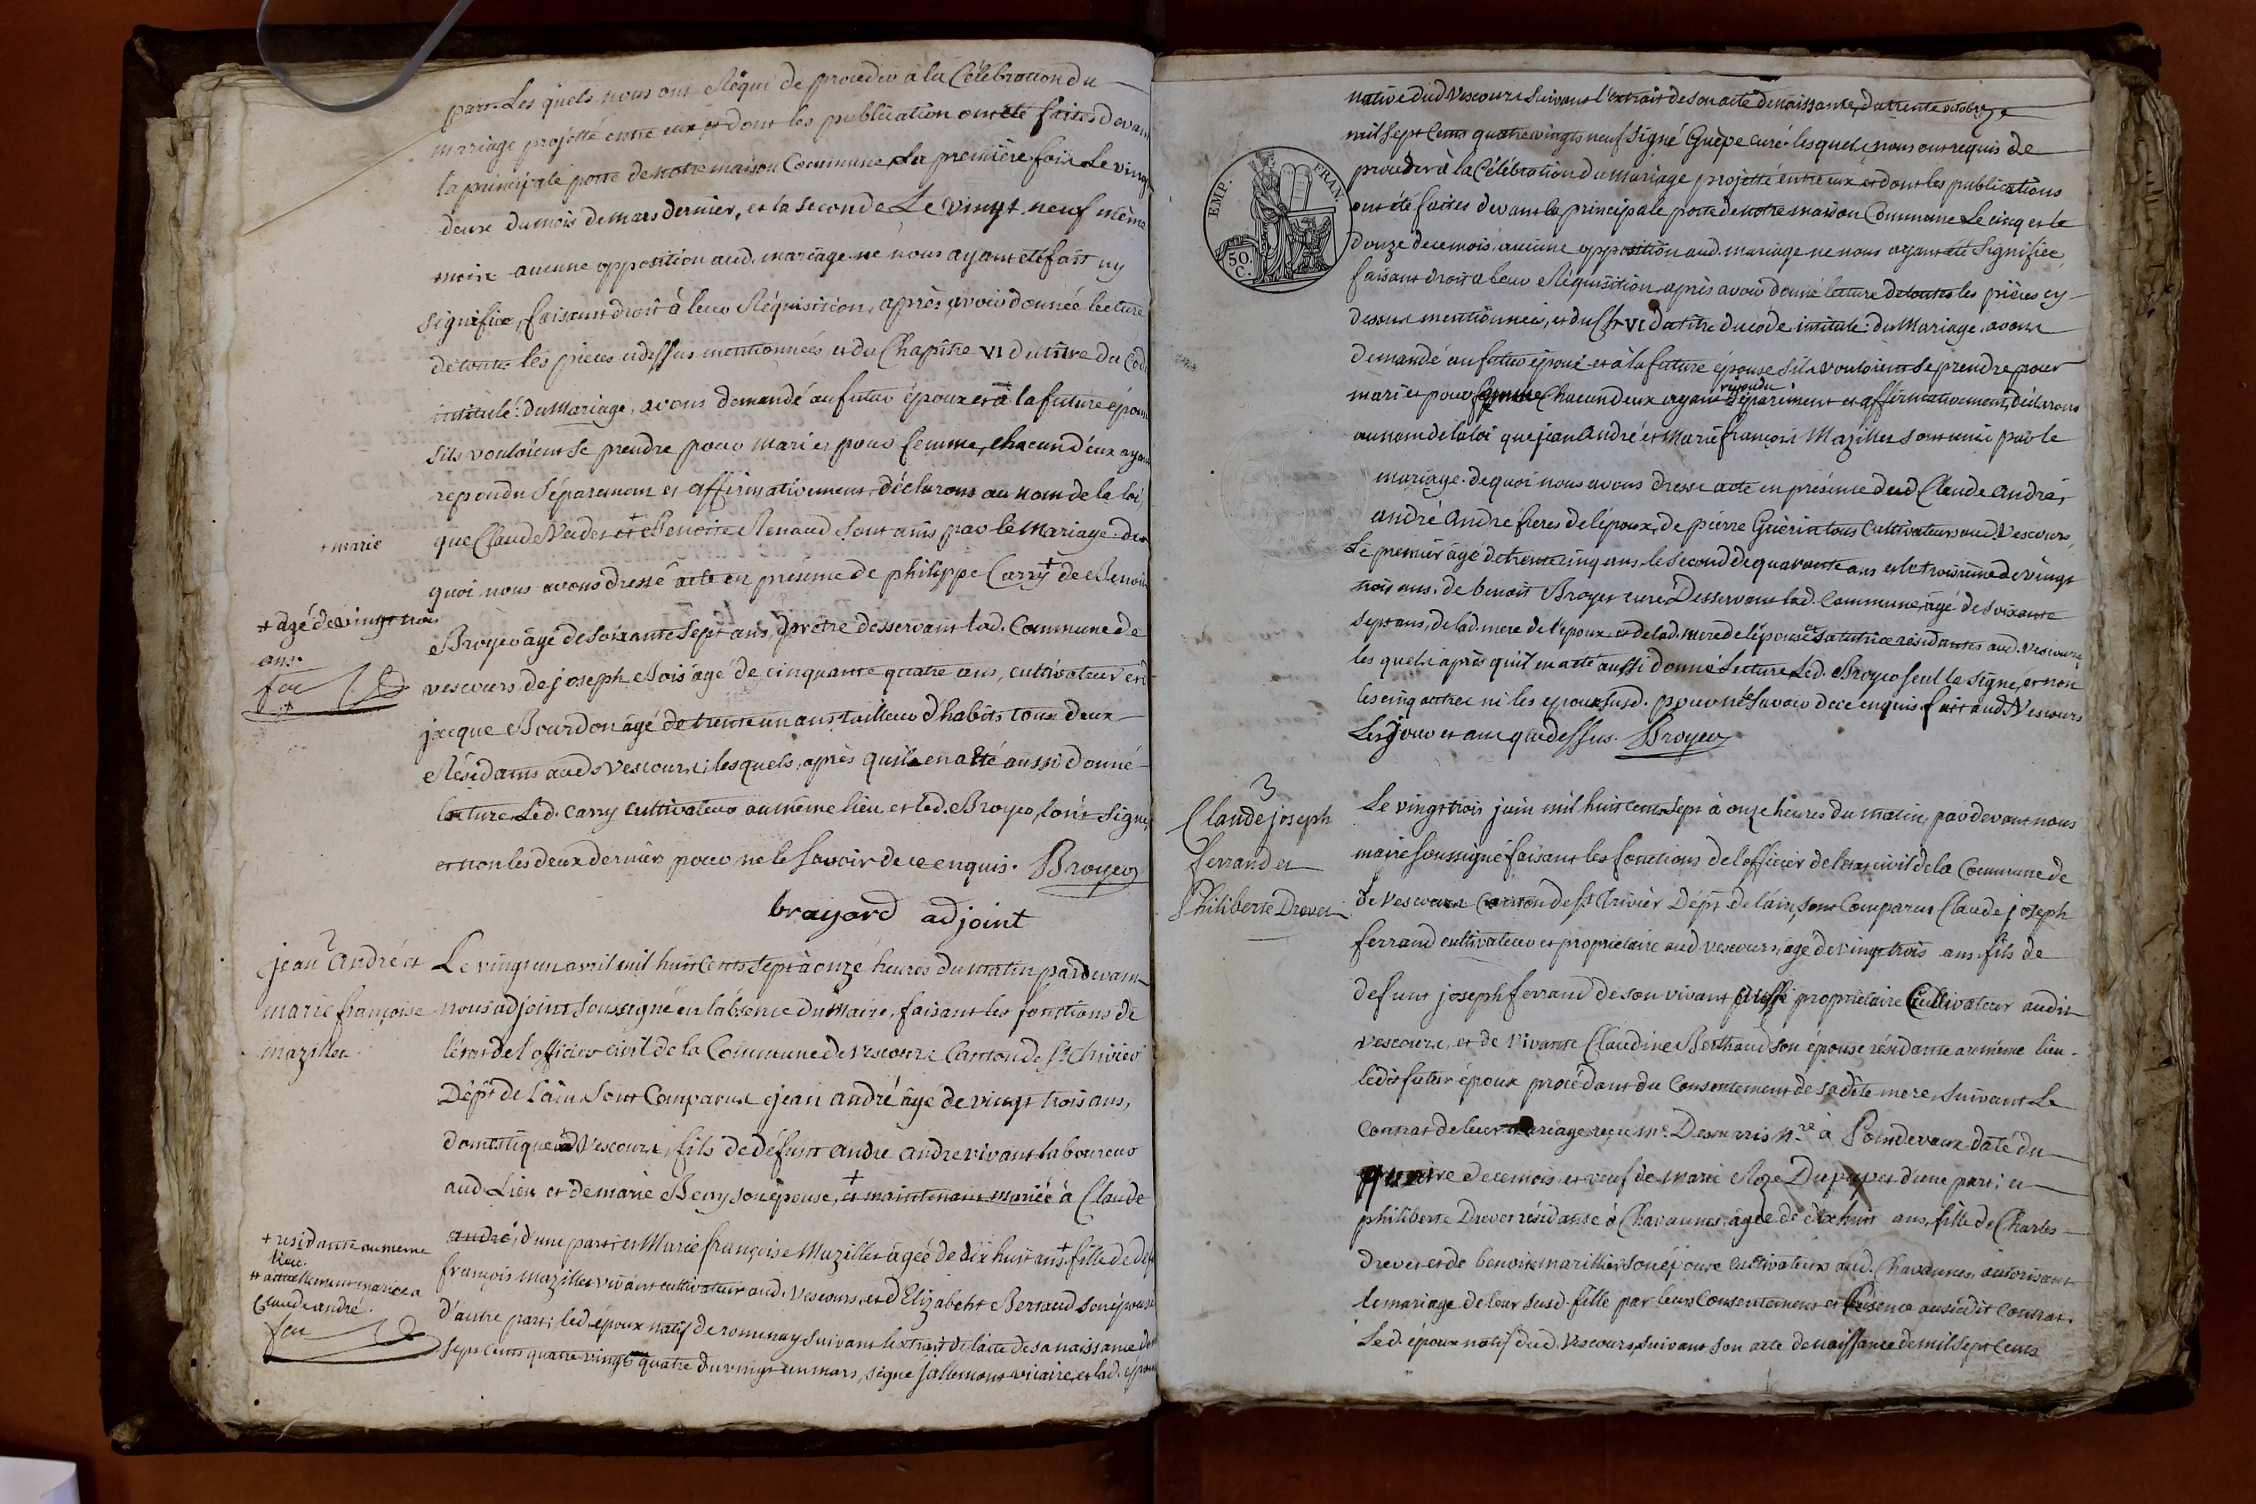 part. Les quels nous ont Réqui de proceder à la Célébration du
mariage projetté entre eux et dont les publication ont été faites devant
la principale porte de notre maison Commune, La première fois Le vingt
deux du mois de mars dernier, et la seconde Le vingt neuf même
mois aucune opposition aud. mariage ne nous ayant été fait ny
signifié, faisant droit à leur Réquisition, après avoir donnée lecture
de toutes les pièces cidessus mentionnées et du Chapitre VI du titre du Code
intitulé: du Mariage, avons demandé au futur époux et à la future épouse
s'ils vouloient se prendre pour mari et pour femme, chacun d'eux ayant
repondu séparement et affirmativement, déclarons au nom de la loi,
que Claude Verdet et + Benoite Renaud sont unis par le Mariage. de
+ marie
quoi nous avons dressé acte en présence de philippe Carry + de Benoit
+ agé de vingt trois
ans.
Broyer âgé de soixante sept ans, prêtre desservant lad. Commune de
vescours, de joseph Bois âgé de cinquante quatre ans, cultivateur et
jacque Bourdon âgé de trente un ans tailleur d'habits tous deux
Résidants aud. Vescours; lesquels, après qu'il en a été aussi donné
lecture, Led. Carry cultivateur au même lieu et led. Broyer, l'ont signé,
et non les deux dernier pour ne le savoir de ce enquis. Broyer
brayard adjoint
jean André et
marie françoise
mazillet.
Le vingt un avril mil huit Cents sept à onze heures du matin pardevant
nous adjoint soussigné en l'absence du Maire, faisant les fonctions de
l'état de l'officier civil de la Commune de vescours Canton de St. trivier
Dépt. de l'ain, sont Comparus jean andré âgé de vingt trois ans,
domestique à Vescours, fils de défunt andre andre vivant laboureur
aud. Lieu et de marie Berry son épouse, + et maintenant mariée à Claude
andré, d'une part; et Marie françoise Mazillet âgée de dix huit ans + fille de def.
+ residante au meme
lieu.
+ actuellement mariée a
Claude andré.
françois mazillet vivant cultivateur aud. Vescours, et d'Elizabeht Bertaud son épouse
d'autre part; led. époux natif de romenay suivant l'extrait de l'acte de sa naissance de
sept cents quatre vingt quatre du vingt un mars, signé jallemont vicaire, et lad. epouse
native dud Vescours suivant l'extrait de son acte de naissance, du trente octobre
mil sept Cents quatre vingts neuf signé Guépe curé. lesquels nous ont requis de
proceder à la Célébration du mariage projetté entre eux et dont les publications
ont été faites devant la principale porte de notre maison Commune Le cinq et le
douze de ce mois, aucune opposition aud. mariage ne nous ayant été signifiée
EMP. FRAN.
50. C.
faisant droit a leur Réquisition, après avoir donné lecture de toutes les pièces cy
dessus mentionnées, et du Ch. VI du titre du code intitulé: du Mariage, avons
demandé au futur époux et à la future épouse s'ils vouloient se prendre pour
mari et pour femme, Chacun d'eux ayant répondu séparément et affirmativement, déclarons
au nom de la loi que jean André et Marie françoise Mazillet sont unis par le
mariage. de quoi nous avons dressé acte en présence dud Claude andré,
andré André freres de l'époux, de pierre Guérin tous Cultivateurs aud. Vescours,
Le premier âgé de trente cinq ans, le second de quarante ans et le troisième de vingt
trois ans. de benoit Broyer curé Desservant lad. Commune, âgé de soixante
sept ans, de lad. mere de l'époux et de lad. mere de l'épouse et sa tutrice résidantes aud. vescours,
les quels après qu'il en a été aussi donné Lecture, Led. Broyer seul la signé, et non
les cinq autres ni les epoux susd. pour ne le savoir de ce enquis. fait aud Vescours
Les jour et an que dessus. Broyer
3
Claude joseph
ferrand et
Philiberte Drevet
Le vingt trois juin mil huit cents sept à onze heures du matin, par devant nous
maire soussigné faisant les fonctions de l'officier de l'état civil de la Commune de
de Vescours Canton de St. Trivier Dépt. de l'ain, sont Comparus Claude joseph
ferrand cultivateur et proprietaire aud vescours, âgé de vingt trois ans fils de
defunt joseph ferrand de son vivant aussi propriétaire Cultivateur audit
vescours, et de vivante Claudine Berthaud son épouse résidante au même lieu.
ledit futur époux procédant du Consentement de sa dite mere, suivant Le
Contrat de leur mariage reçu Me. Desmarris n.re à Pondevaux daté du
quatre de ce mois et veuf de marie Roze Dupupet d'une part; et
philiberte Drevet résidante à Chavannes, âgée de dix huit ans, fille de Charles
Drevet et de benoite marillier son épouse cultivateurs aud. Chavannes autorisant
le mariage de leur susd. fille par leurs Consentement et Présence au susdit contrat.
Led. époux natif dud. Vescours, suivant son acte de naissance de mil sept Cents